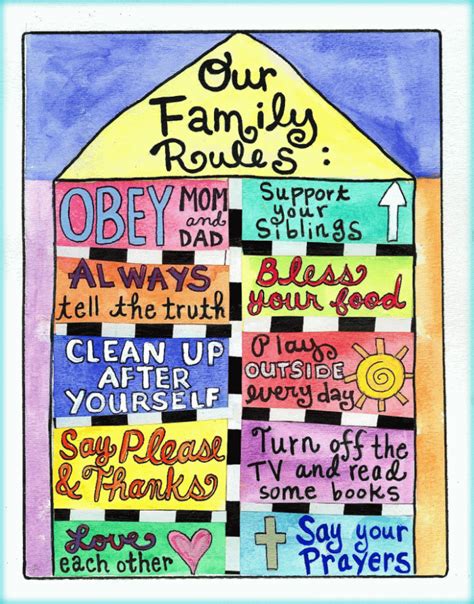 Our
Family
Rules:
OBEY MOM
and
DAD
Support
your
Siblings
ALWAYS
tell the truth
Bless
your food
CLEAN UP
AFTER
YOURSELF
Play
OUTSIDE
every day
Say Please
& Thanks
Turn off the
TV and read
some books
Love
each other
Say your
Prayers